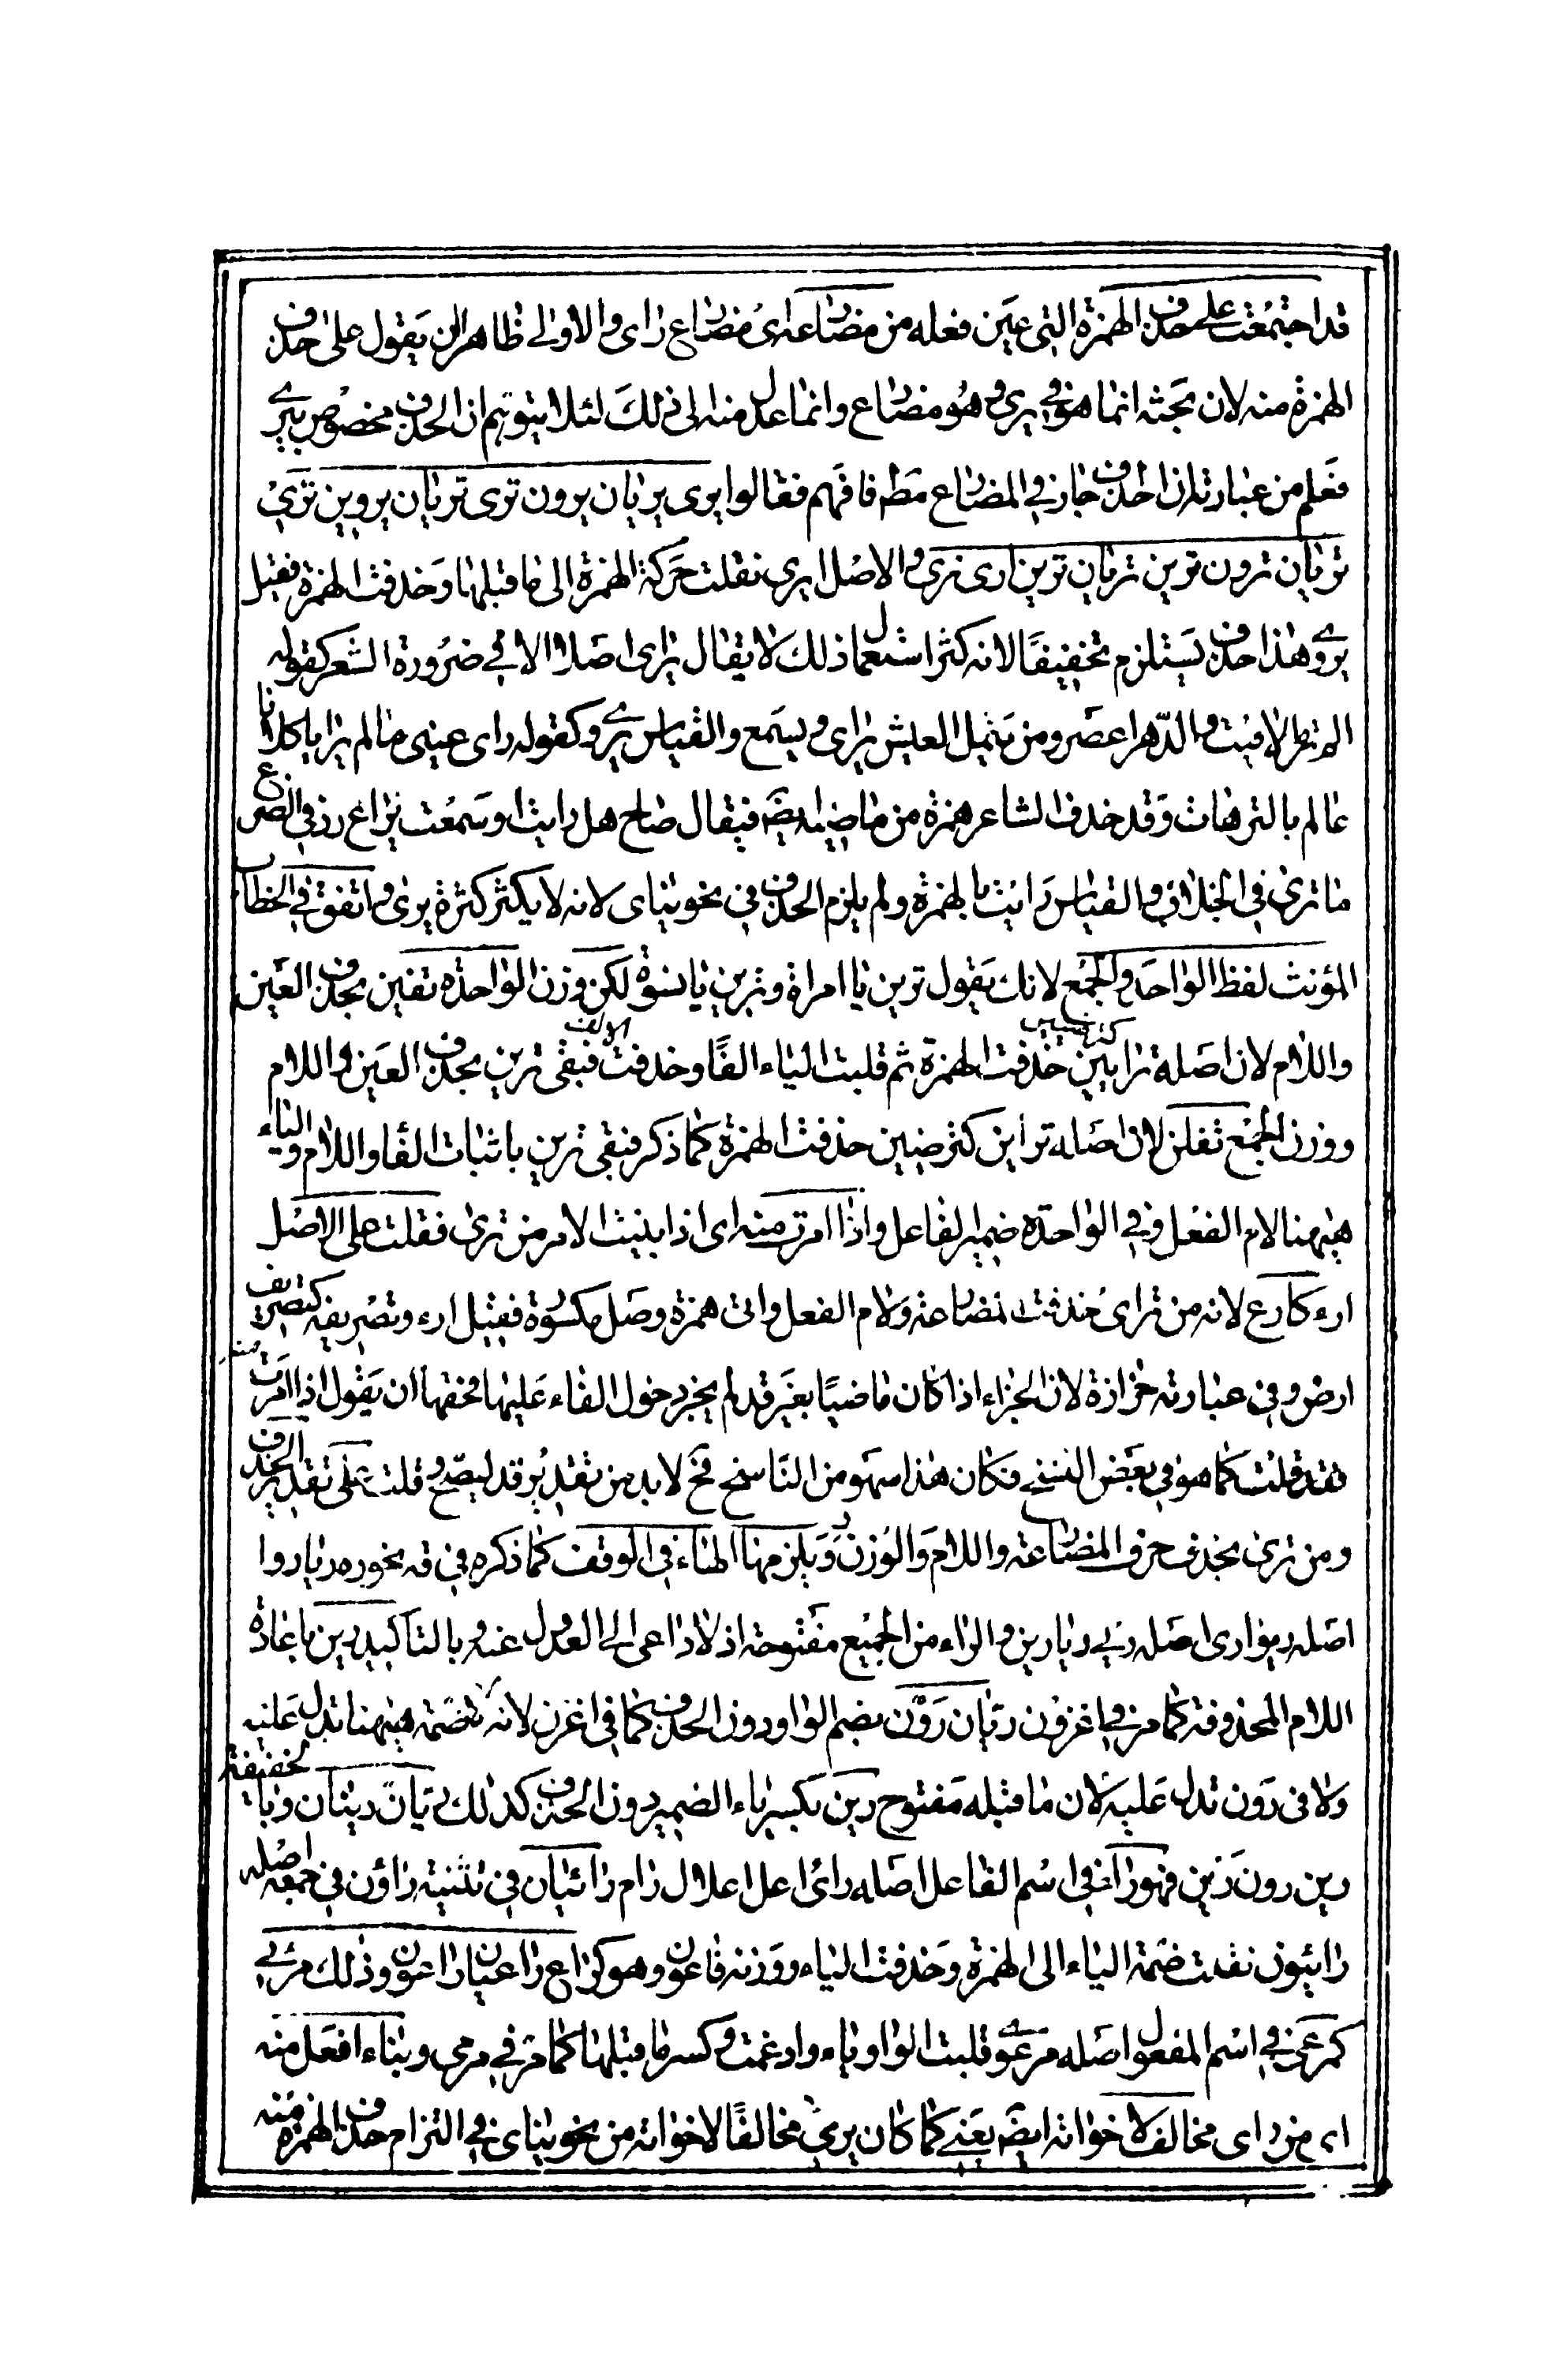 قد اجتمعت على حذف الهمزة التى عين فعله من مضارعه اى مضارع راى والاولى ظاهرا ان يقول على حذف
الهمزة منه لان بحثه انما هو فى يرى وهو مضارع وانما عدل منه الى ذلك لئلا يتوهم ان الحذف مخصوص بيرى
فعلم من عبارته ان الحذف جار فى المضارع مط فافهم فقالوا يرى يريان يرون ترى تريان يرين ترى
تريان ترون ترين تريان ترين ارى نرى والاصل يرى نقلت حركة الهمزة الى ما قبلها وحذفت الهمزة فقيل
يرى وهذا حذف يستلزم تخفيفا لانه كثر استعمال ذلك لا يقال يراى اصلا الا فى ضرورة الشعر كقوله
الم تر ما لاقيت والدهر اعصر ومن يتمل العيش يراى ويسمع والقياس ير وكقوله راى عينى ما لم ترايا كلانا
عالم بالترهات وقد حذف الشاعر همزة من ماضيه ايضه فيقال صاح هل رايت او سمعت براع رد فى الضرع
ما ترى فى الحلاب والقياس رايت بالهمزة ولم يلزم الحذف فى نحو يناى لانه لا يكثر كثرة يرى واتفق فى الخطاب
المؤنث لفظ الواحد والجمع لانك تقول ترين يا امراة وترين يا نسوة لكن وزن الواحدة تفين بحذف العين
واللام لان اصله ترايين كترضيين حذفت الهمزة ثم قلبت الياء الفا وحذفت الالف فبقى ترين بحذف العين واللام
ووزن الجمع تفلن لان اصله تراين كترضين حذفت الهمزة كما ذكر فبقى ترين باثبات الفا واللام والياء
ههنا لام الفعل وفى الواحدة ضمير الفاعل واذا امرت منه اى اذا بنيت الامر من ترى فقلت على الاصل
ارء كارع لانه من تراى حذفت المضارعة ولام الفعل واتى همزة وصل مكسورة فقيل ارء وتصريفه كتصريف
ارض وفى عبارته حزازة لان الجزاء اذا كان ماضيا بغير قد لم يجز دخول الفاء عليها فحقها ان يقول اذا امرت منه
فقد قلت كما هو فى بعض النسخ فكان هذا سهو من الناسخ فح لا بد من تقدير قد ليصح وقلت على تقدير الحذف
ر من ترى بحذف حرف المضارعة واللام والوزن ف ويلزمها الهاء فى الوقف كما ذكره فى قه نحو ره ريا روا
اصله ريوا رى اصله ريى ريا رين والراء من الجميع مفتوحة اذ لا داعى الى العدول عنه وبالتاكيد رين باعادة
اللام المحذوفة كما مر فى اغزون ريان رون بضم الواو دون الحذف كما فى اغزن لانه لا ضمة ههنا تدل عليه
ولا فى رون تدل عليه لان ما قبله مفتوح رين بكسر ياء الضمير دون الحذف كذلك ريان رينان وبالخفيفة
رين رون رين فهو راء فى اسم الفاعل اصله رائ اعل اعلال رام رائيان فى تثنيته راؤن فى جمعه اصله
رائيون نقلت ضمة الياء الى الهمزة وحذفت الياء ووزنه فاعون وهو كراع راعيان راعون وذلك مرئى
كمرعى فى اسم المفعول اصله مرعوى قلبت الواو ياء وادغمت وكسر ما قبلها كما مر فى مرمى وبناء افعل منه
اى من راى مخالف لاخواته ايضه يعنى كما كان يرى مخالفا لاخواته من نحو يناى فى التزام حذف الهمزة منه